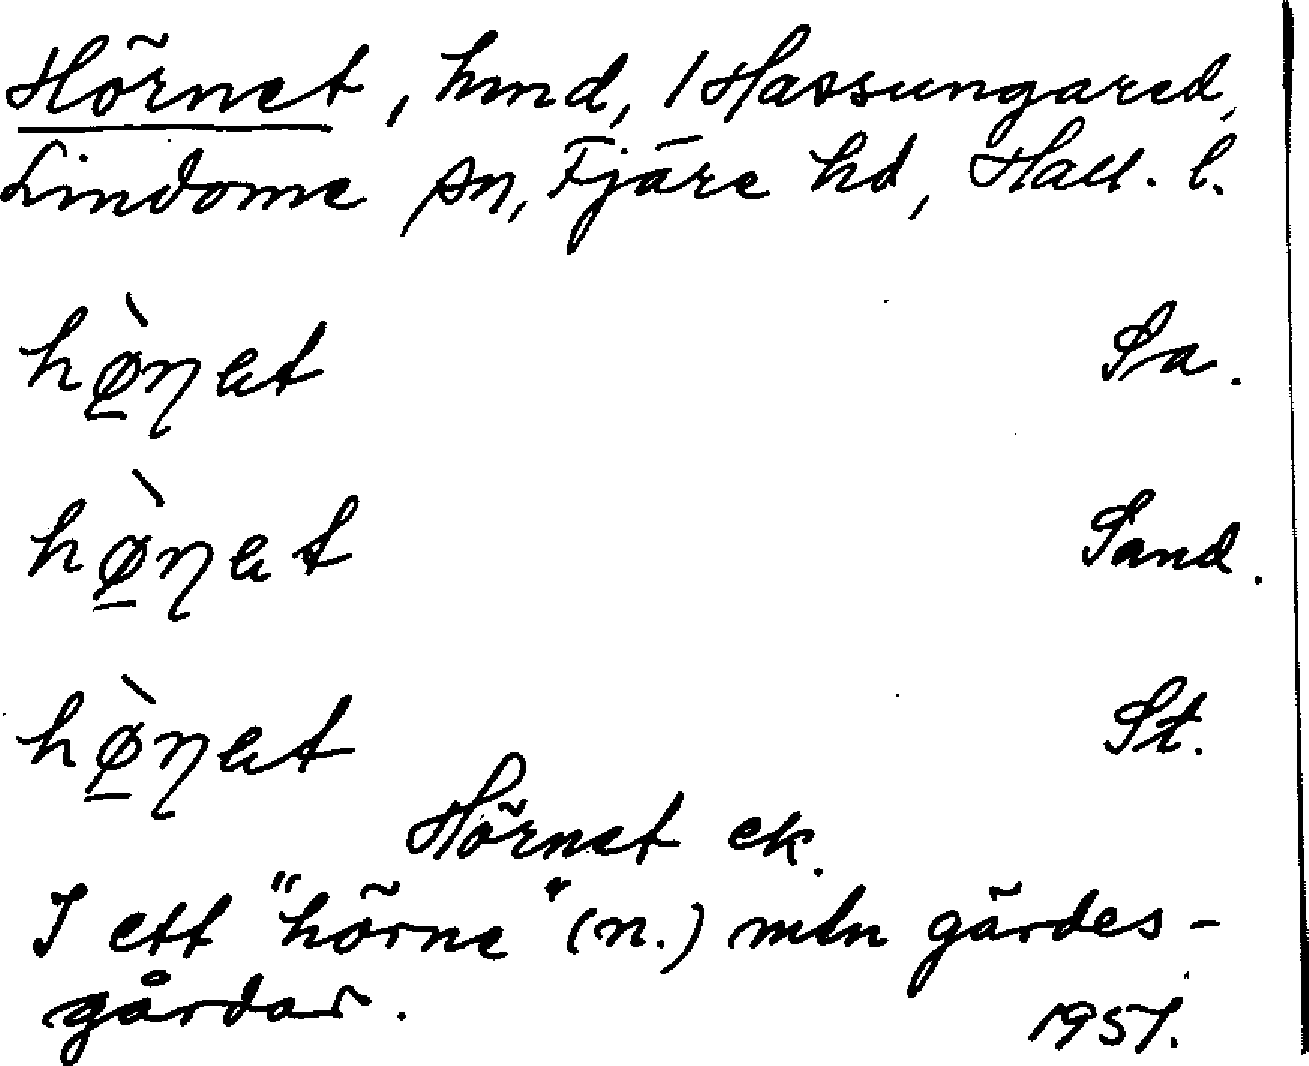 Hörnet, hmd, 1 Hassungared,
Lindome sn, Fjäre hd, Hall. l.
hø̱̀ɳet Sa.
hø̱̀ɳet Sand.
hø̱̀ɳet St.
Hörnet ek.
I ett "hörne" (n.) mln gärdes-
gårdar.
1951.